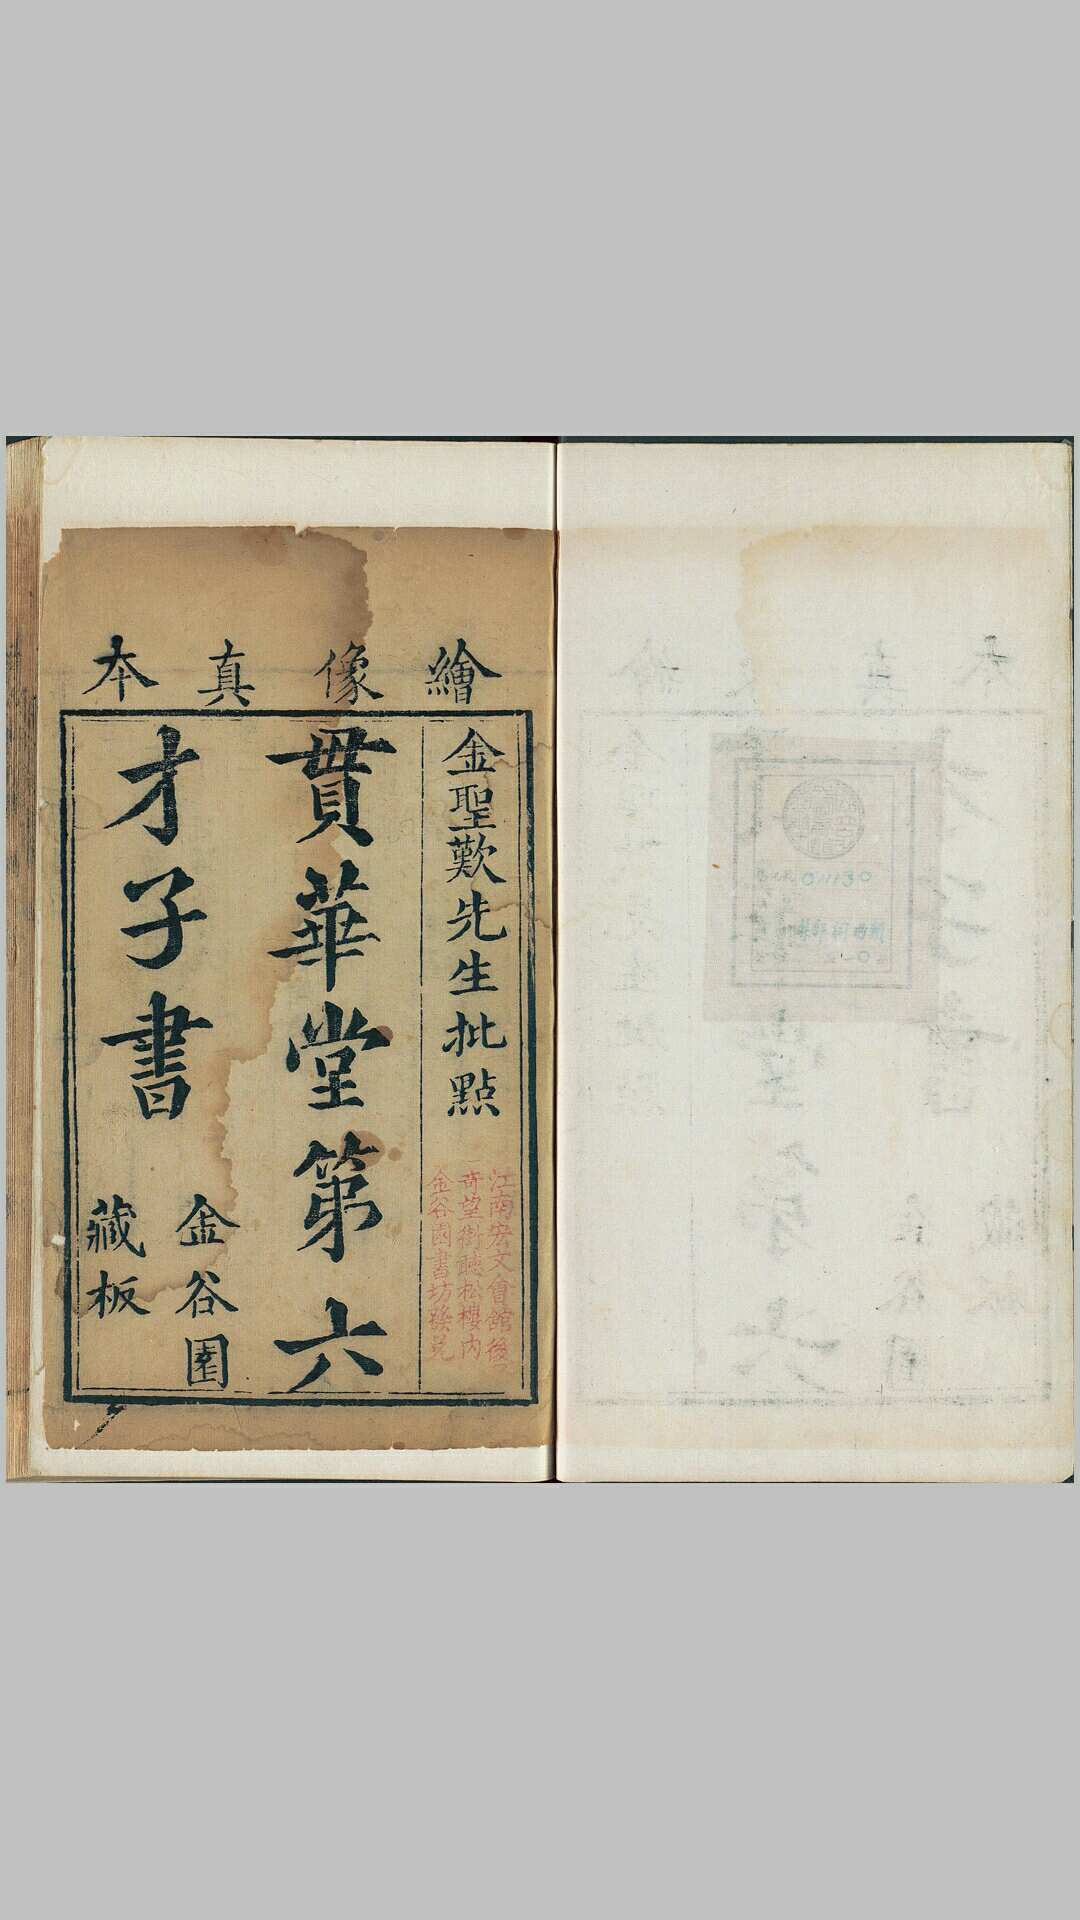 繪像真本
金聖歎先生批點
江南宏文會館後
奇望街聽松樓內
金谷園書坊發兌
貫華堂第六
才子書
金谷園
藏板